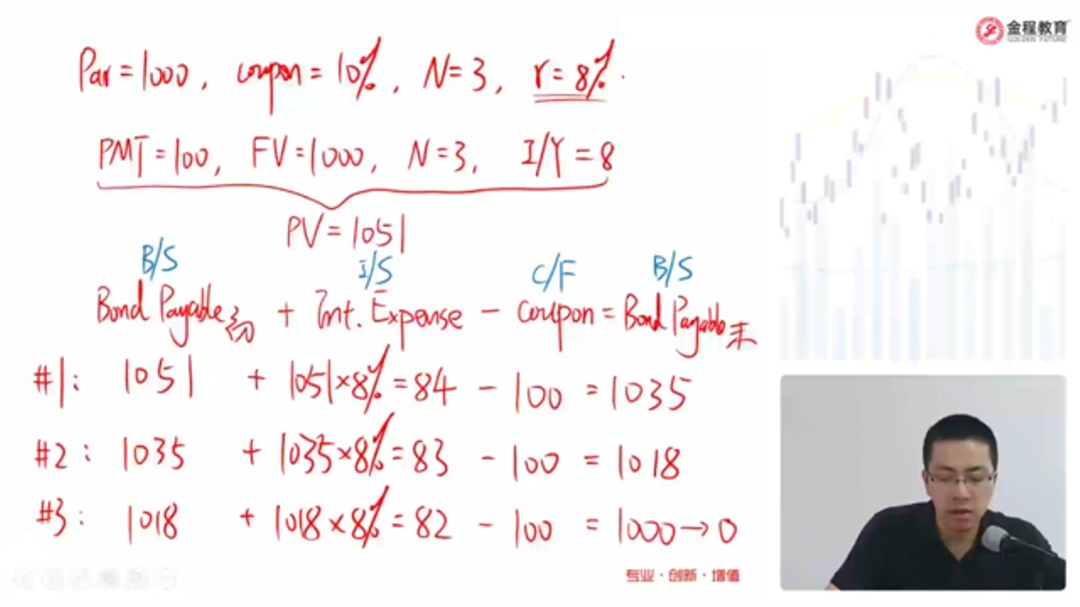 金程教育
GOLDEN FUTURE
Par=1000, coupon=10%, N=3, r=8%.
PMT=100, FV=1000, N=3, I/Y=8
PV=1051
B/S I/S C/F B/S
Bond Payable初 + Int. Expense - coupon = Bond Payable末
#1: 1051 + 1051×8%=84 - 100 = 1035
#2: 1035 + 1035×8%=83 - 100 = 1018
#3: 1018 + 1018×8%=82 - 100 = 1000→0
专业·创新·增值